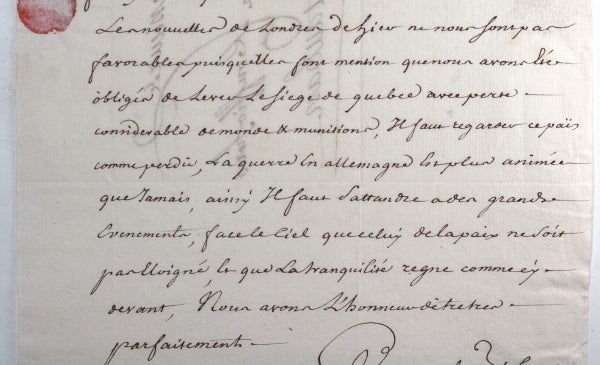 Les nouvelles de Londres d'hier ne nous sont pas
favorables puisquelles font mention que nous avons Eté
obligés de Lever Le Siege de quebec avec perte
considerable de monde & munitions, Il faut regarder ce païs
comme perdu, La guerre En allemagne Est plus animée
que Jamais, ainsÿ Il faut Sattandre a des grands
Evenements, face le Ciel que celuÿ de la paix ne Soit
pas Eloigné, Et que La tranquilité regne comme cÿ
devant, Nous avons L'honneur dêtre tres
parfaitement